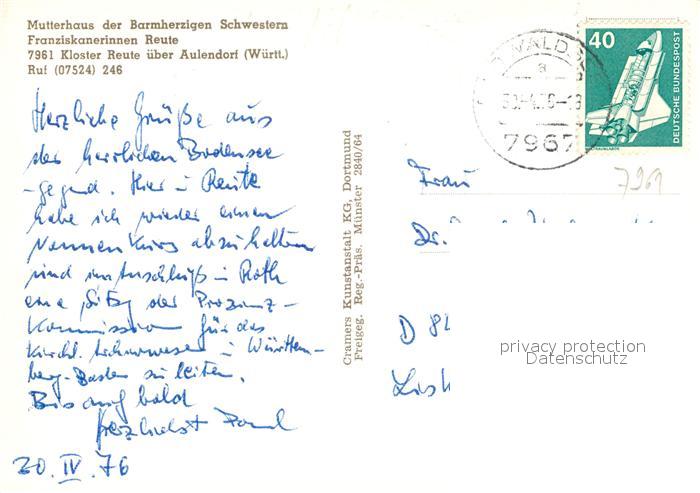 Mutterhaus der Barmherzigen Schwestern
Franziskanerinnen Reute
7961 Kloster Reute über Aulendorf (Württ.)
Ruf (07524) 246
Herzliche Grüße aus
der herrlichen Bodensee
-gegend. Hier in Reute
habe ich wieder einen
Nonnenkurs abzuhalten
und im Anschluß in Roth
eine Sitzg der Provinz-
Kommission für das
kirchl. in Württem-
berg-Baden zu leiten.
Bis auf bald
herzlichst Paul
20. IV. 76
Cramers Kunstanstalt KG, Dortmund
Freigeg. Reg.-Präs. Münster 2840/64
WALDSEE
a
7967
40
DEUTSCHE BUNDESPOST
7961
Frau
Dr.
D 8
privacy protection
Datenschutz